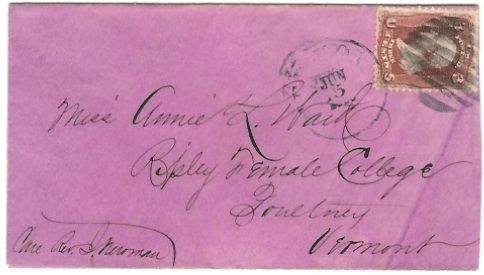 JUN
15
U 3
3 S
Miss Annie L. Ward
Ripley Female College
Poultney
Vermont
Care Rev. J. Newman